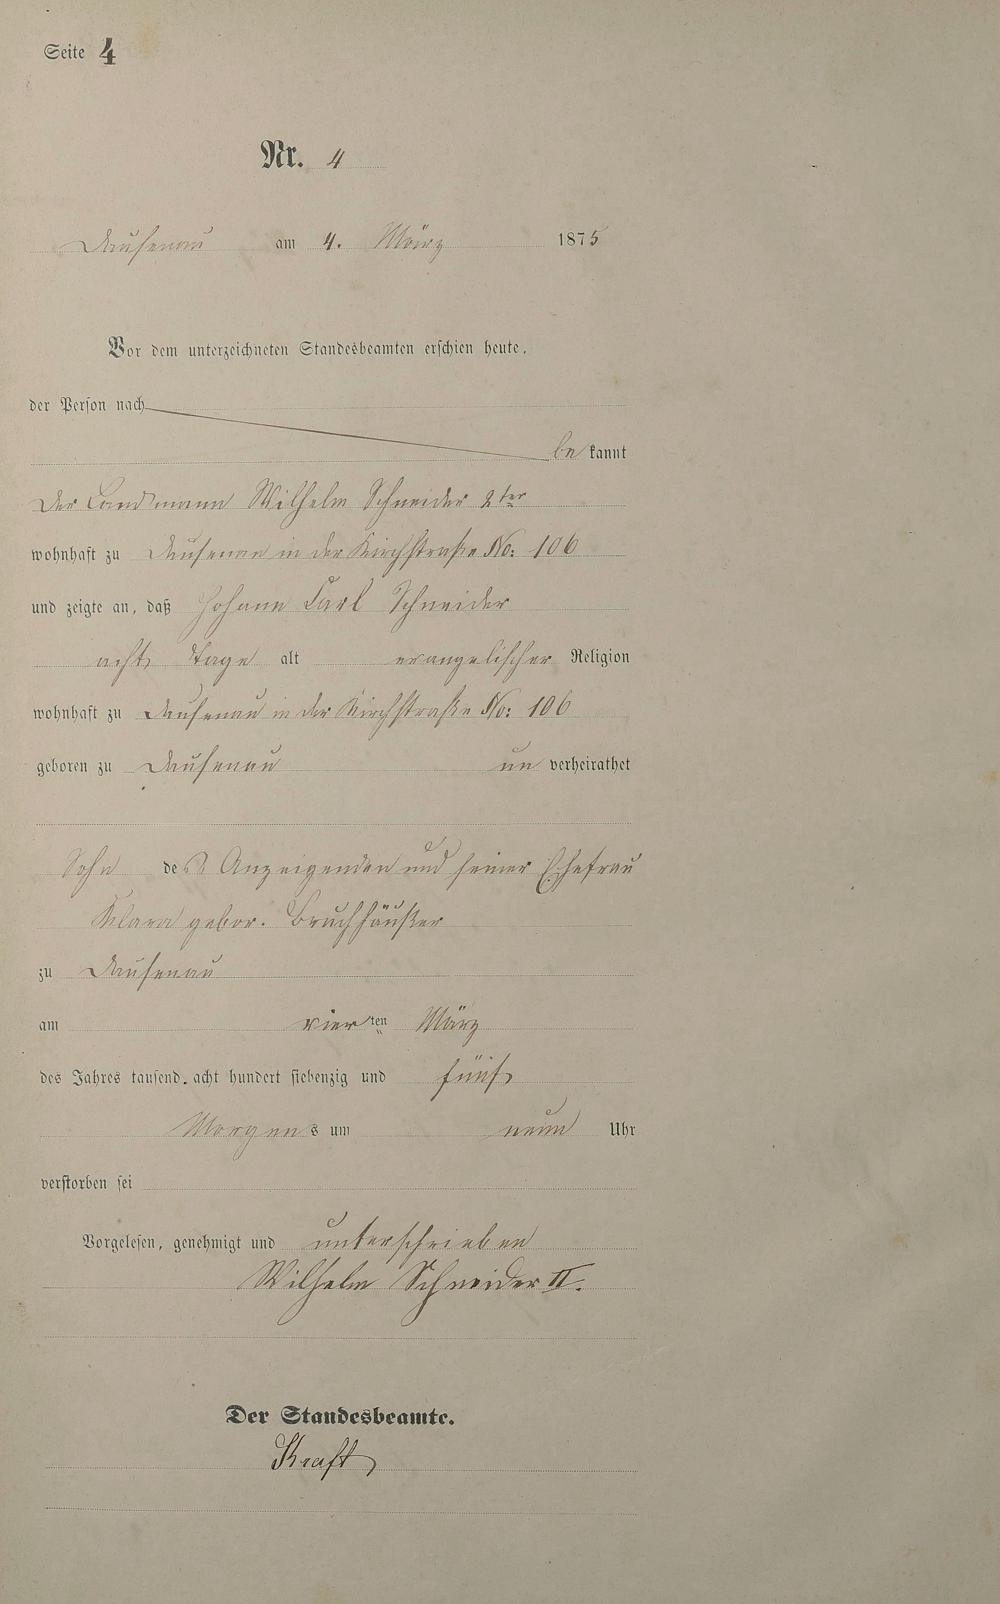 Seite 4
Nr. 4
Dausenau am 4. März 1875
Vor dem unterzeichneten Standesbeamten erschien heute,
der Person nach
be kannt
Der Landmann Wilhelm Schneider 2ter
wohnhaft zu Dausenau in der Kirchstraße No: 106
und zeigte an, daß Johann Carl Schneider
acht Tage alt evangelischer Religion
wohnhaft zu Dausenau in der Kirchstraße No: 106
geboren zu Dausenau un verheirathet
Sohn des Anzeigenden und seiner Ehefrau
Klara gebor. Bruchhäußer
zu Dausenau
am vierten März
des Jahres tausend acht hundert siebenzig und fünf
Morgens um neun Uhr
verstorben sei
Vorgelesen, genehmigt und unterschrieben
Wilhelm Schneider II.
Der Standesbeamte.
Kraft